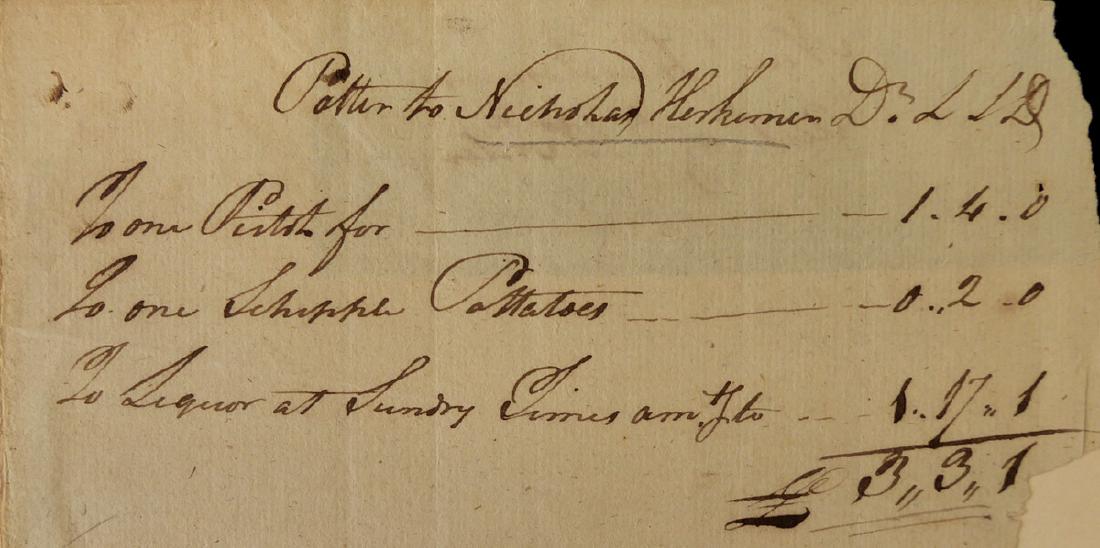 Potter to Nicholas Herkemer Dr. L S D
To one Pistol for — 1. 4. 0
To one Schipple Pottatoes — 0,, 2. 0
To Liquor at Sundry Times amtg to — 1,, 17,, 1
£ 3,, 3,, 1